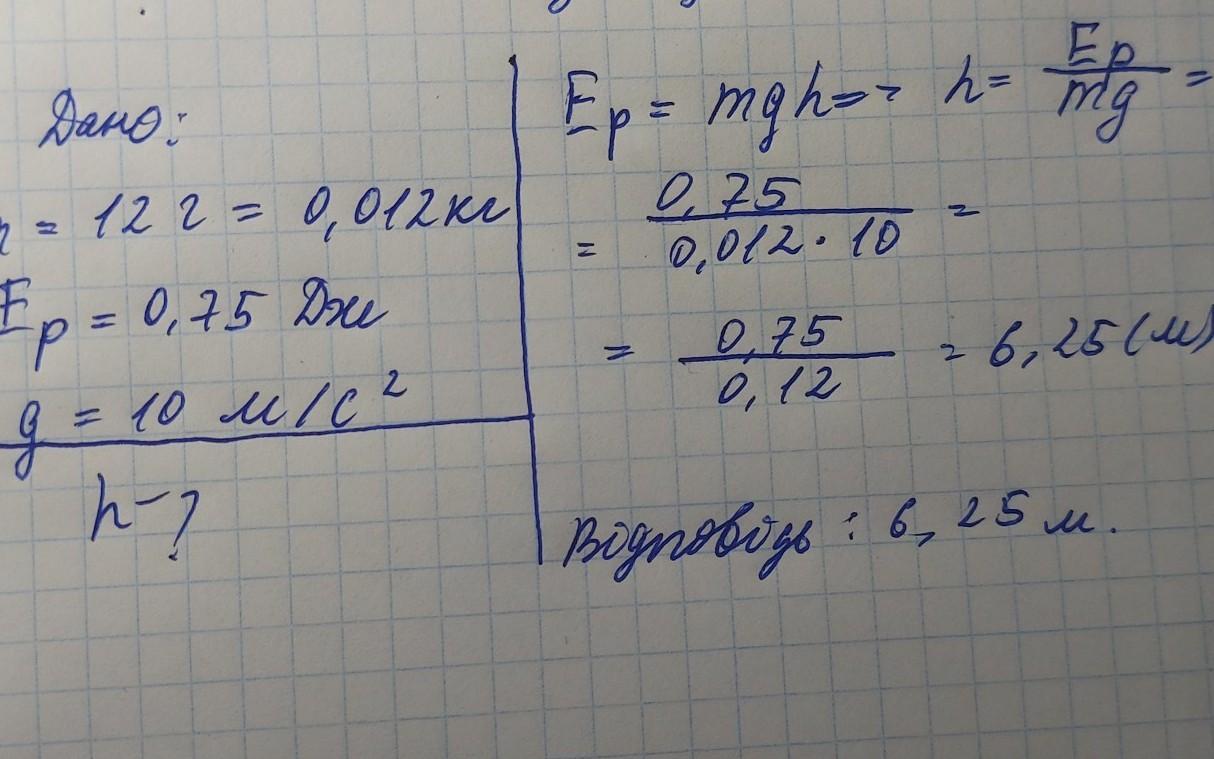 Дано:
m = 12 г = 0,012кг
Ep = 0,75 Дж
g = 10 м/с²
h - ?
Ep = mgh => h = Ep/mg =
= 0,75/0,012·10 =
= 0,75/0,12 = 6,25(м)
Відповідь: 6,25 м.